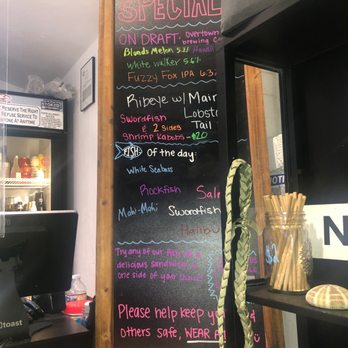 SPECIAL
ON DRAFT: Overtown
brewing Co
Blonds Melon 5.2%
White walker 5.6%
Fuzzy Fox IPA 6.3
Ribeye w/ Main
Lobster
Tail
Swordfish
& 2 Sides
Shrimp Kabobs - $20
FISH Of the day:
White Seabass
Rockfish
Sal
Mahi-Mahi
Swordfish
Halibu
Try any of our
delicious sandwich
one side of your choice
Please help keep yo
others safe, WEAR A
RESERVE THE RIGHT
REFUSE SERVICE TO
ANYONE AT ANYTIME
toast
N